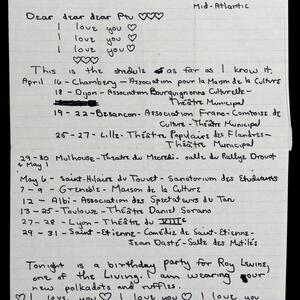 Mid-Atlantic
Dear dear dear Ptu ♡♡♡♡
I love you ♡
I love you ♡
I love you ♡
I love you ♡
This is the as far as I know it.
April 16 - Chambery - Association pour la Maison de la Culture
18 - Dijon - Association Bourguignonne Culturelle -
Théâtre Municipal
19 - 22 - Besancon - Association Franc-Comtoise de
Culture - Théâtre Municipal
25 - 27 - Lille - Théâtre Populaires des Flandres -
Théâtre Municipal
29-30 Mulhouse - Theatre du Mercredi - salle du Rallye Drouot
+ May 1
May 6 - Saint-Hilaire du Touvet - Sanatorium des Etudiants
7 - 9 - Grenoble - Maison de la Culture
12 - Albi - Association des Spectateurs du Tarn
13 - 25 - Toulouse - Théâtre Daniel Sorano
27 - 28 - Lyon - Théâtre du VIIIe
29 - 31 - Saint-Etienne - Comédie de Saint-Etienne -
Jean Dasté - Salle des Mutilés
Tonight is a birthday party for Roy Levine,
one of the Living. I am wearing your
new polkadots and ruffles.
♡ I love you ♡ I love you ♡ I love you